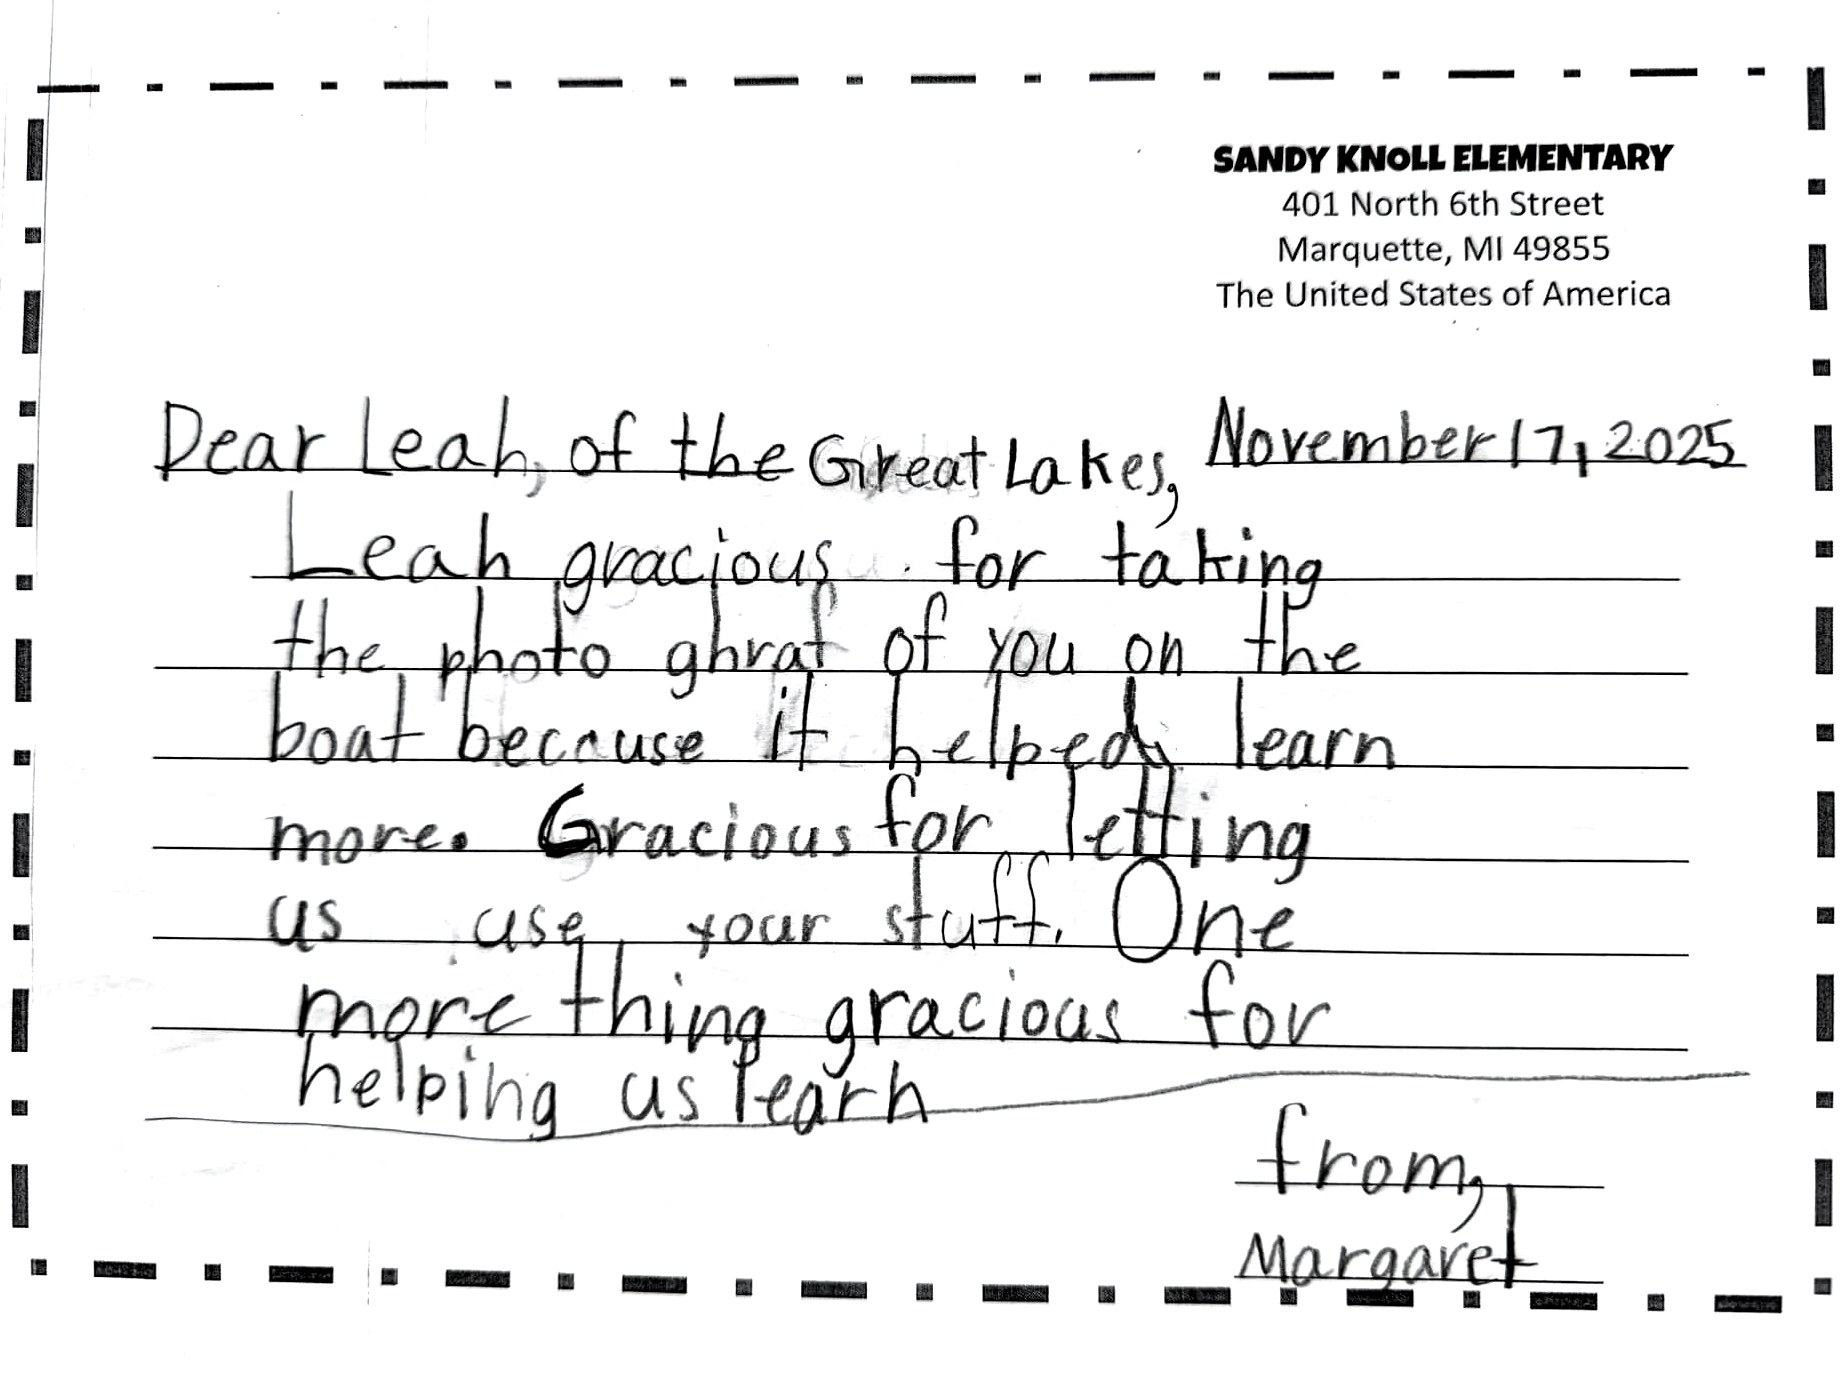 SANDY KNOLL ELEMENTARY
401 North 6th Street
Marquette, MI 49855
The United States of America
Dear Leah, of the Great Lakes, November 17, 2025
Leah gracious for taking
the photo ghraf of you on the
boat because it helped learn
more. Gracious for letting
us use your stuff. One
more thing gracious for
helping us learn
from,
Margaret